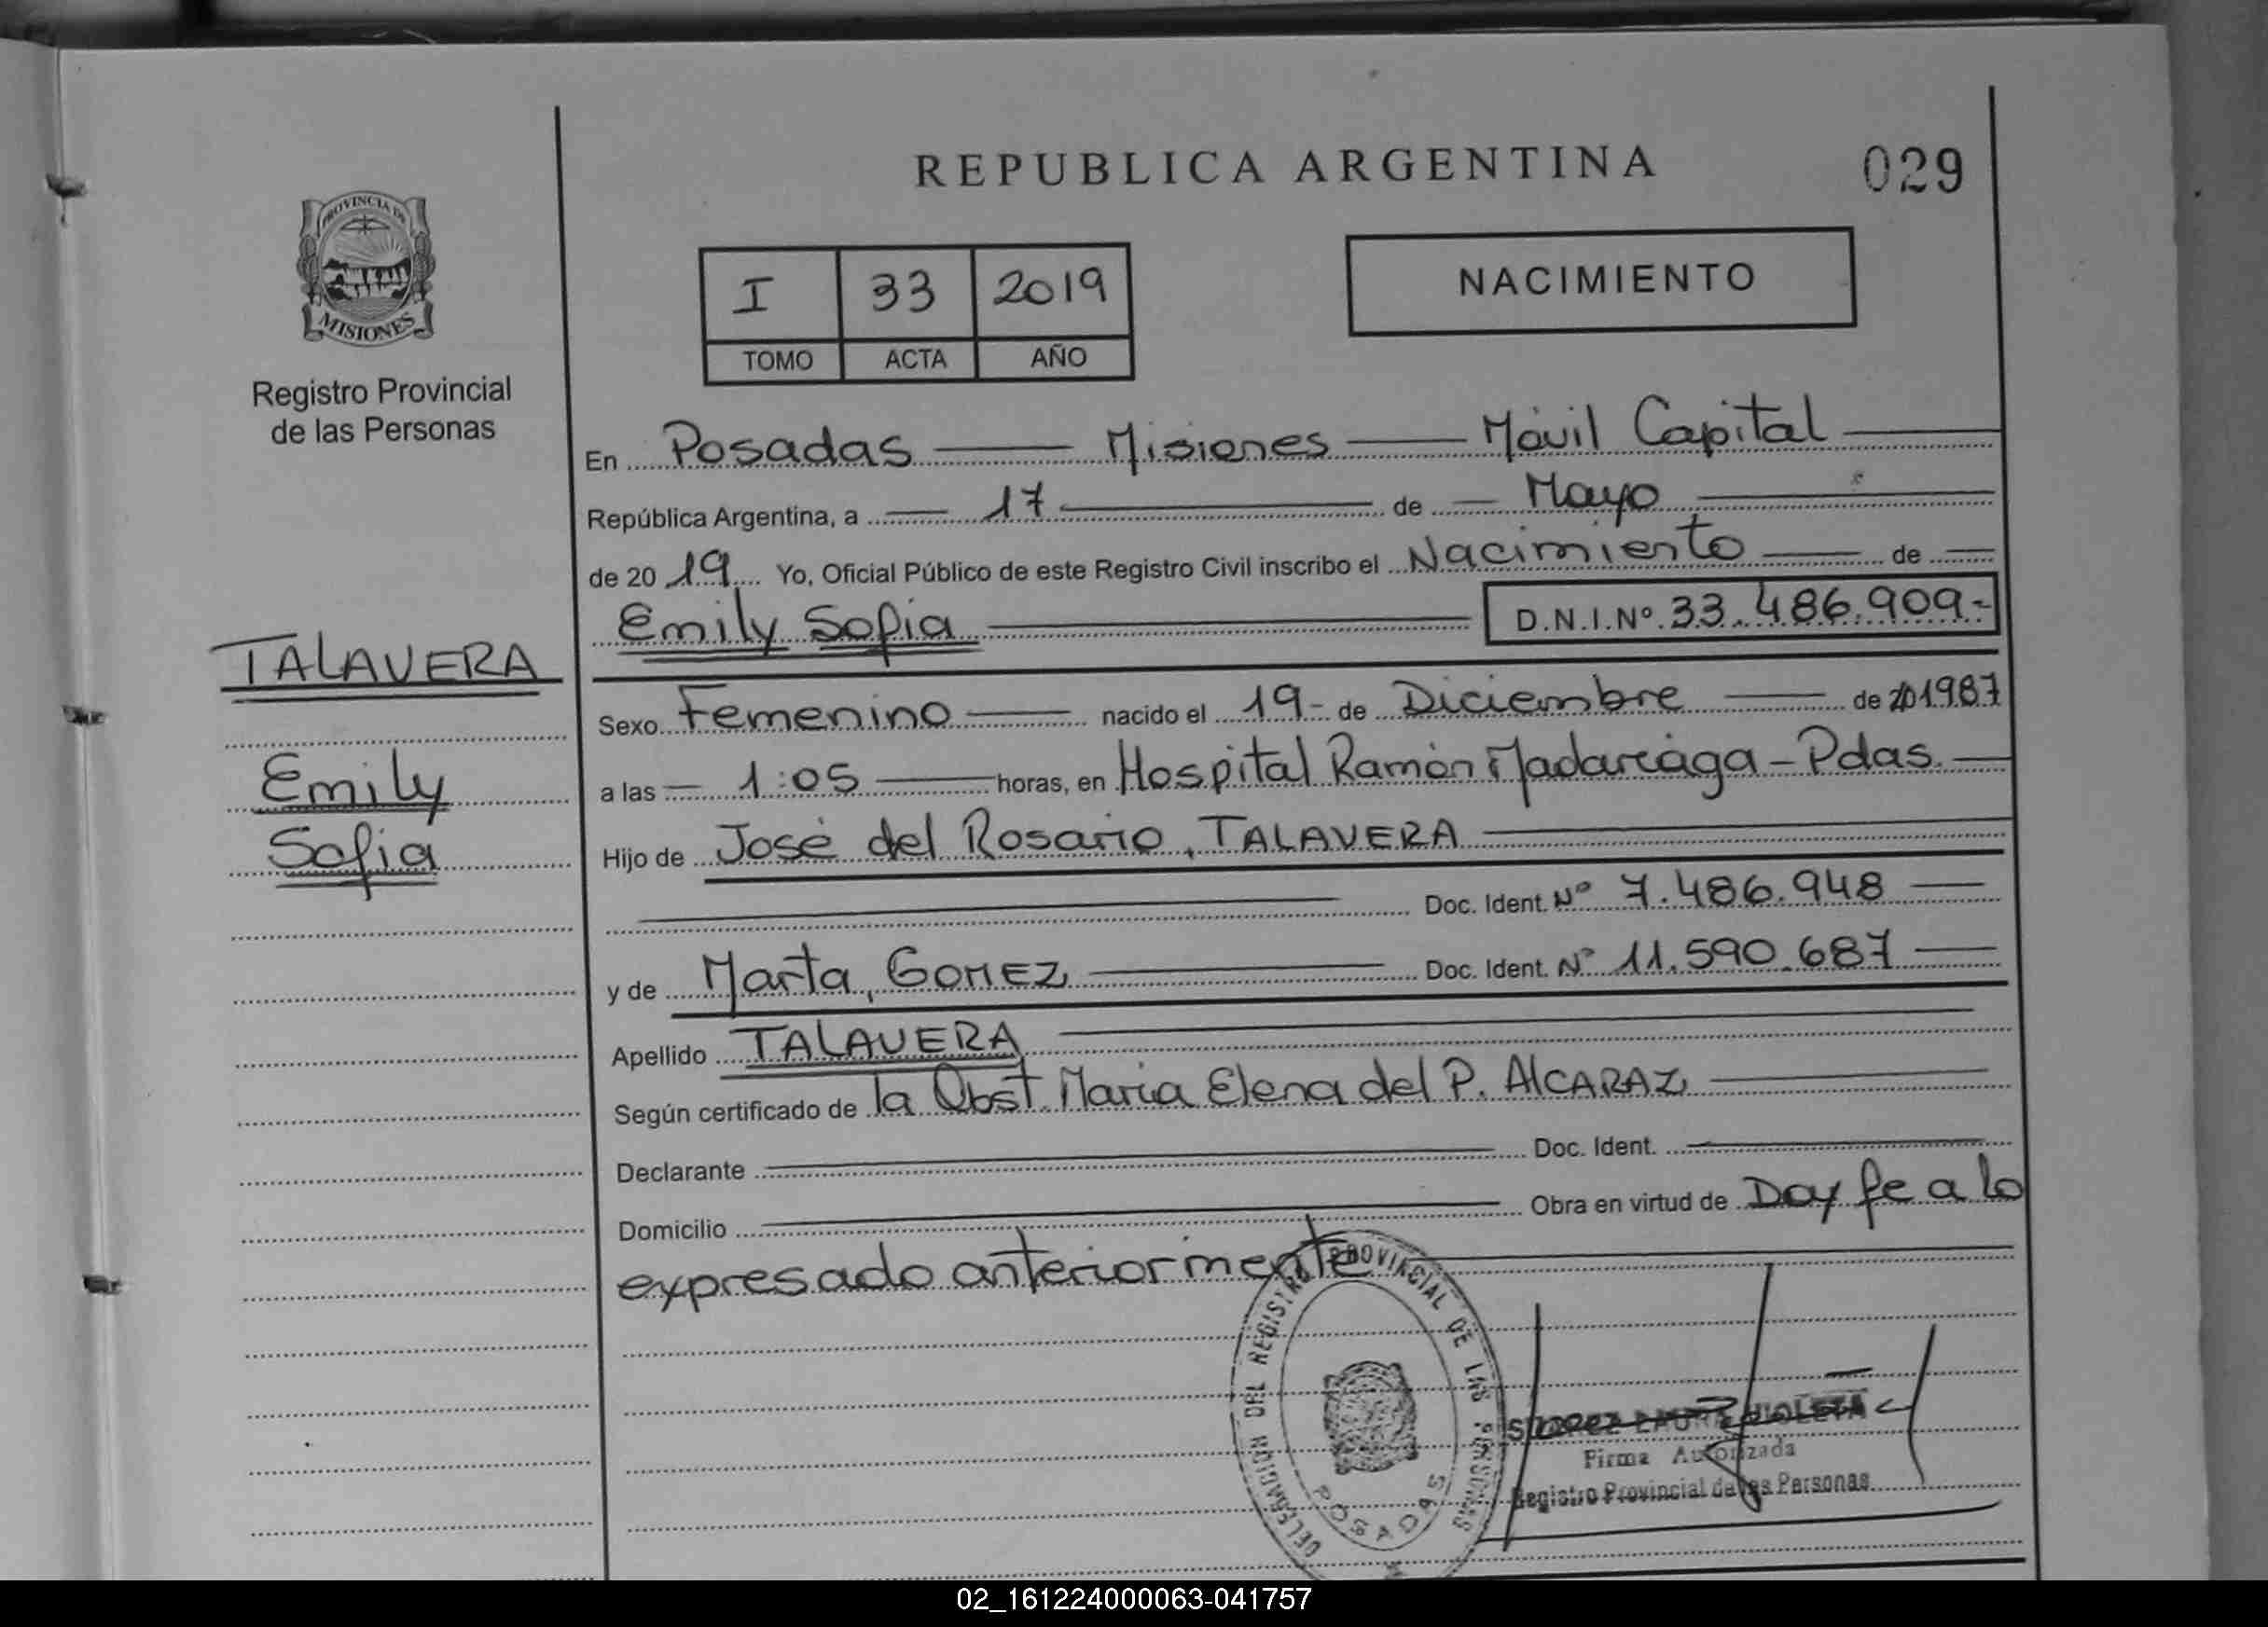 REPUBLICA ARGENTINA
029
PROVINCIA DE
MISIONES
Registro Provincial
de las Personas
I 33 2019
TOMO ACTA AÑO
NACIMIENTO
En Posadas Misiones Móvil Capital
República Argentina, a 17 de Mayo
de 20 19 Yo, Oficial Público de este Registro Civil inscribo el Nacimiento de
Emily Sofia D.N.I.Nº 33.486.909-
TALAVERA
Emily
Sofia
Sexo Femenino nacido el 19- de Diciembre de 20 1987
a las 1:05 horas, en Hospital Ramón Madariaga - Pdas.
Hijo de José del Rosario, TALAVERA
Doc. Ident. Nº 7.486.948
y de Marta, GOMEZ Doc. Ident. Nº 11.590.687
Apellido TALAVERA
Según certificado de la Obst. Maria Elena del P. AlCARAZ
Declarante Doc. Ident.
Domicilio Obra en virtud de Doy fe a lo
expresado anteriormente
DELEGACION DEL REGISTRO PROVINCIAL DE LAS PERSONAS
POSADAS
LAURA VIOLETA
Firma Autorizada
Registro Provincial de las Personas
02_161224000063-041757